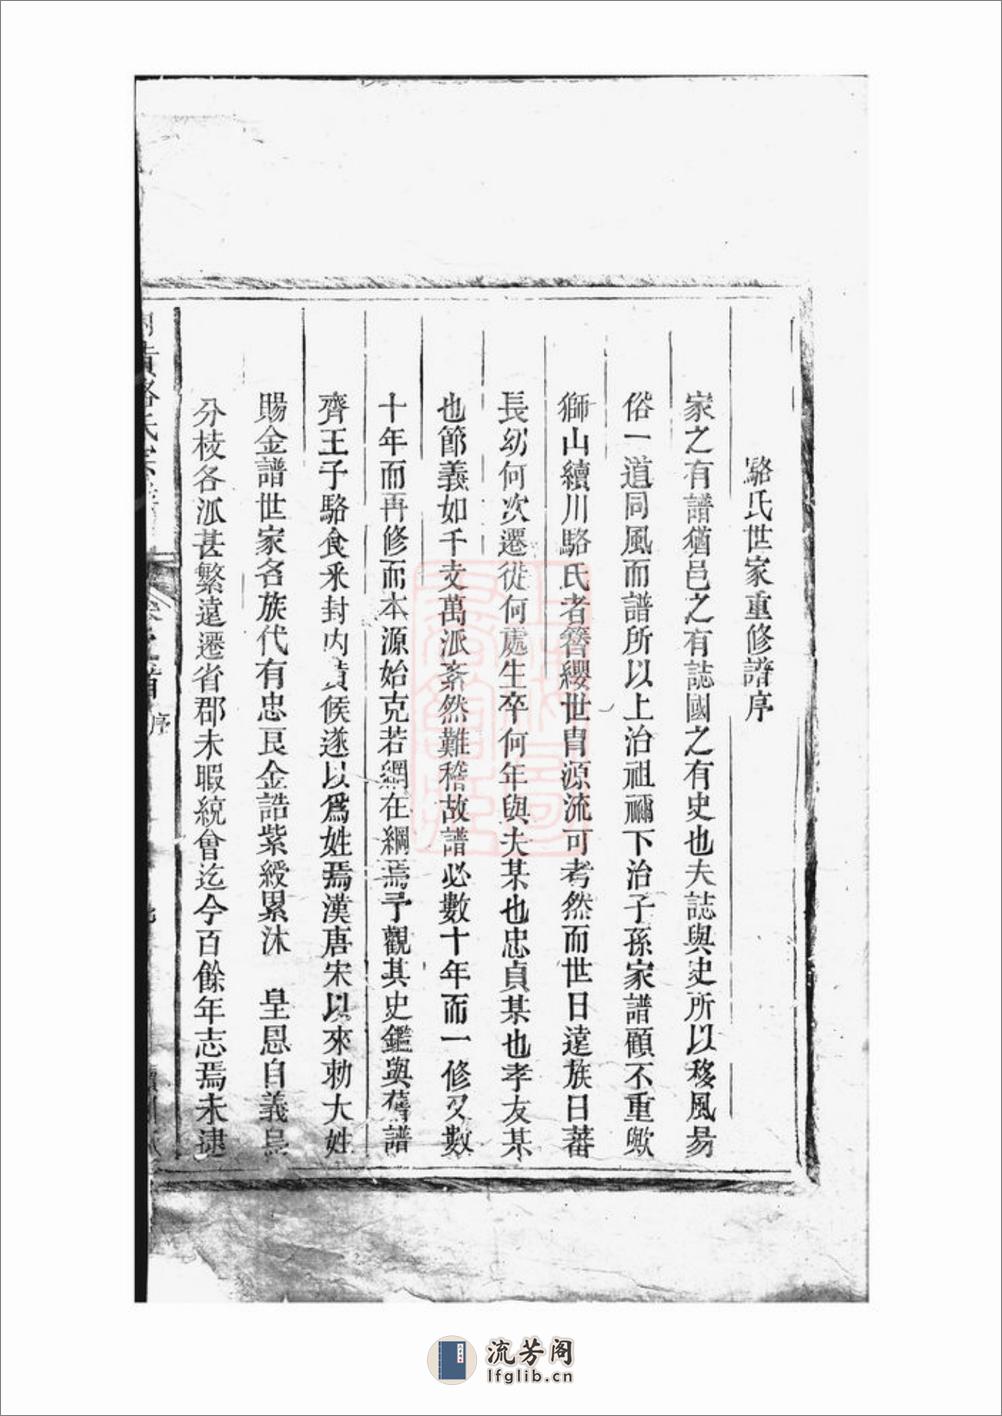 駱氏世家重修譜序
家之有譜猶邑之有誌國之有史也夫誌與史所以移風易
俗一道同風而譜所以上治祖禰下治子孫家譜顧不重歟
獅山續川駱氏者簪纓世冑源流可考然而世日遠族日蕃
長幼何次遷徙何處生卒何年與夫某也忠貞某也孝友某
也節義如千支萬派紊然難稽故譜必數十年而一修又數
十年而再修而本源始克若網在綱焉予觀其史鑑與舊譜
齊王子駱食釆封內黃候遂以爲姓焉漢唐宋以來勅大姓
賜金譜世家名族代有忠良金誥紫綬累沐 皇恩自義烏
分枝各派甚繁遠遷省郡未暇統會迄今百餘年志焉未逮
駱氏宗
卷之首 序